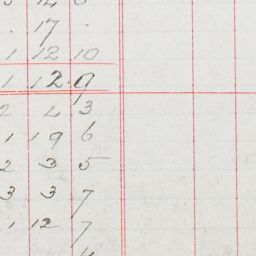 . 17 .
1 12 10
1 12 9
2 4 3
1 19 6
2 3 5
3 3 7
1 12 7